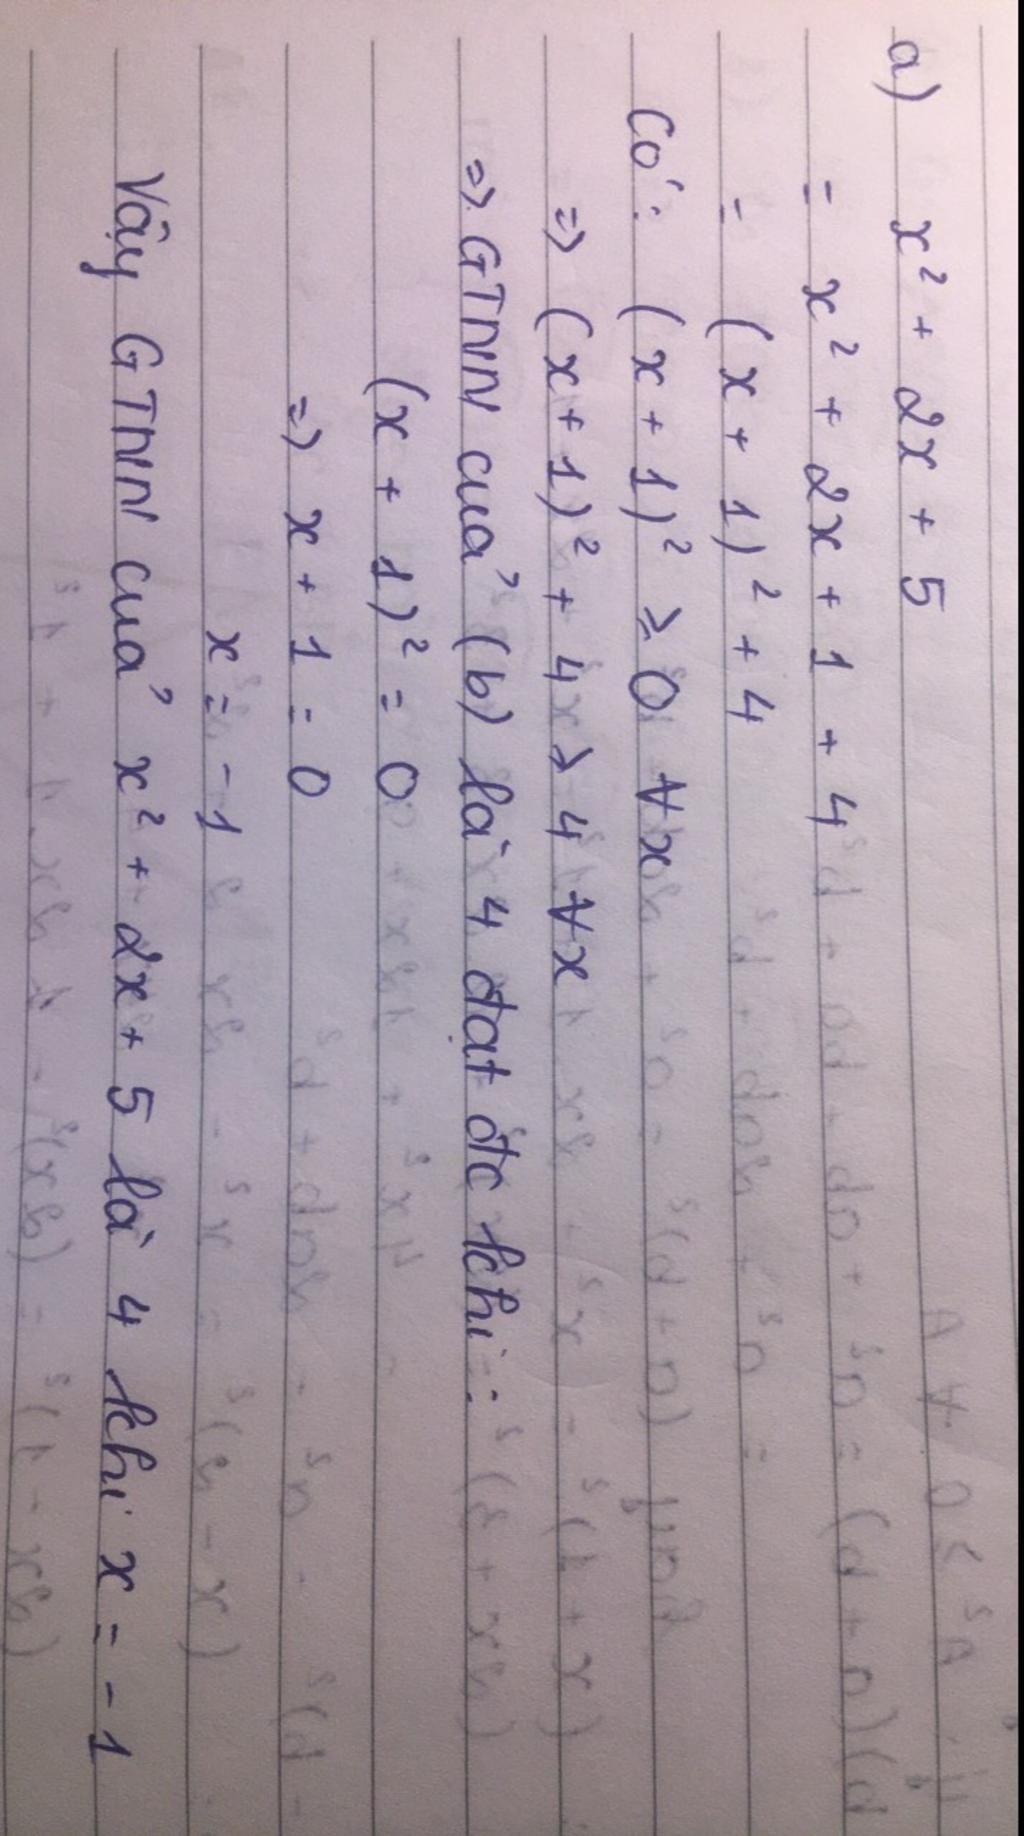 a) x² + 2x + 5
= x² + 2x + 1 + 4
= (x + 1)² + 4
Có: (x + 1)² ≥ 0 ∀x
=> (x + 1)² + 4 ≥ 4 ∀x
=> GTNN của (b) là 4 đạt đc khi:
(x + 1)² = 0
=> x + 1 = 0
x = -1
Vậy GTNN của x² + 2x + 5 là 4 khi x = -1